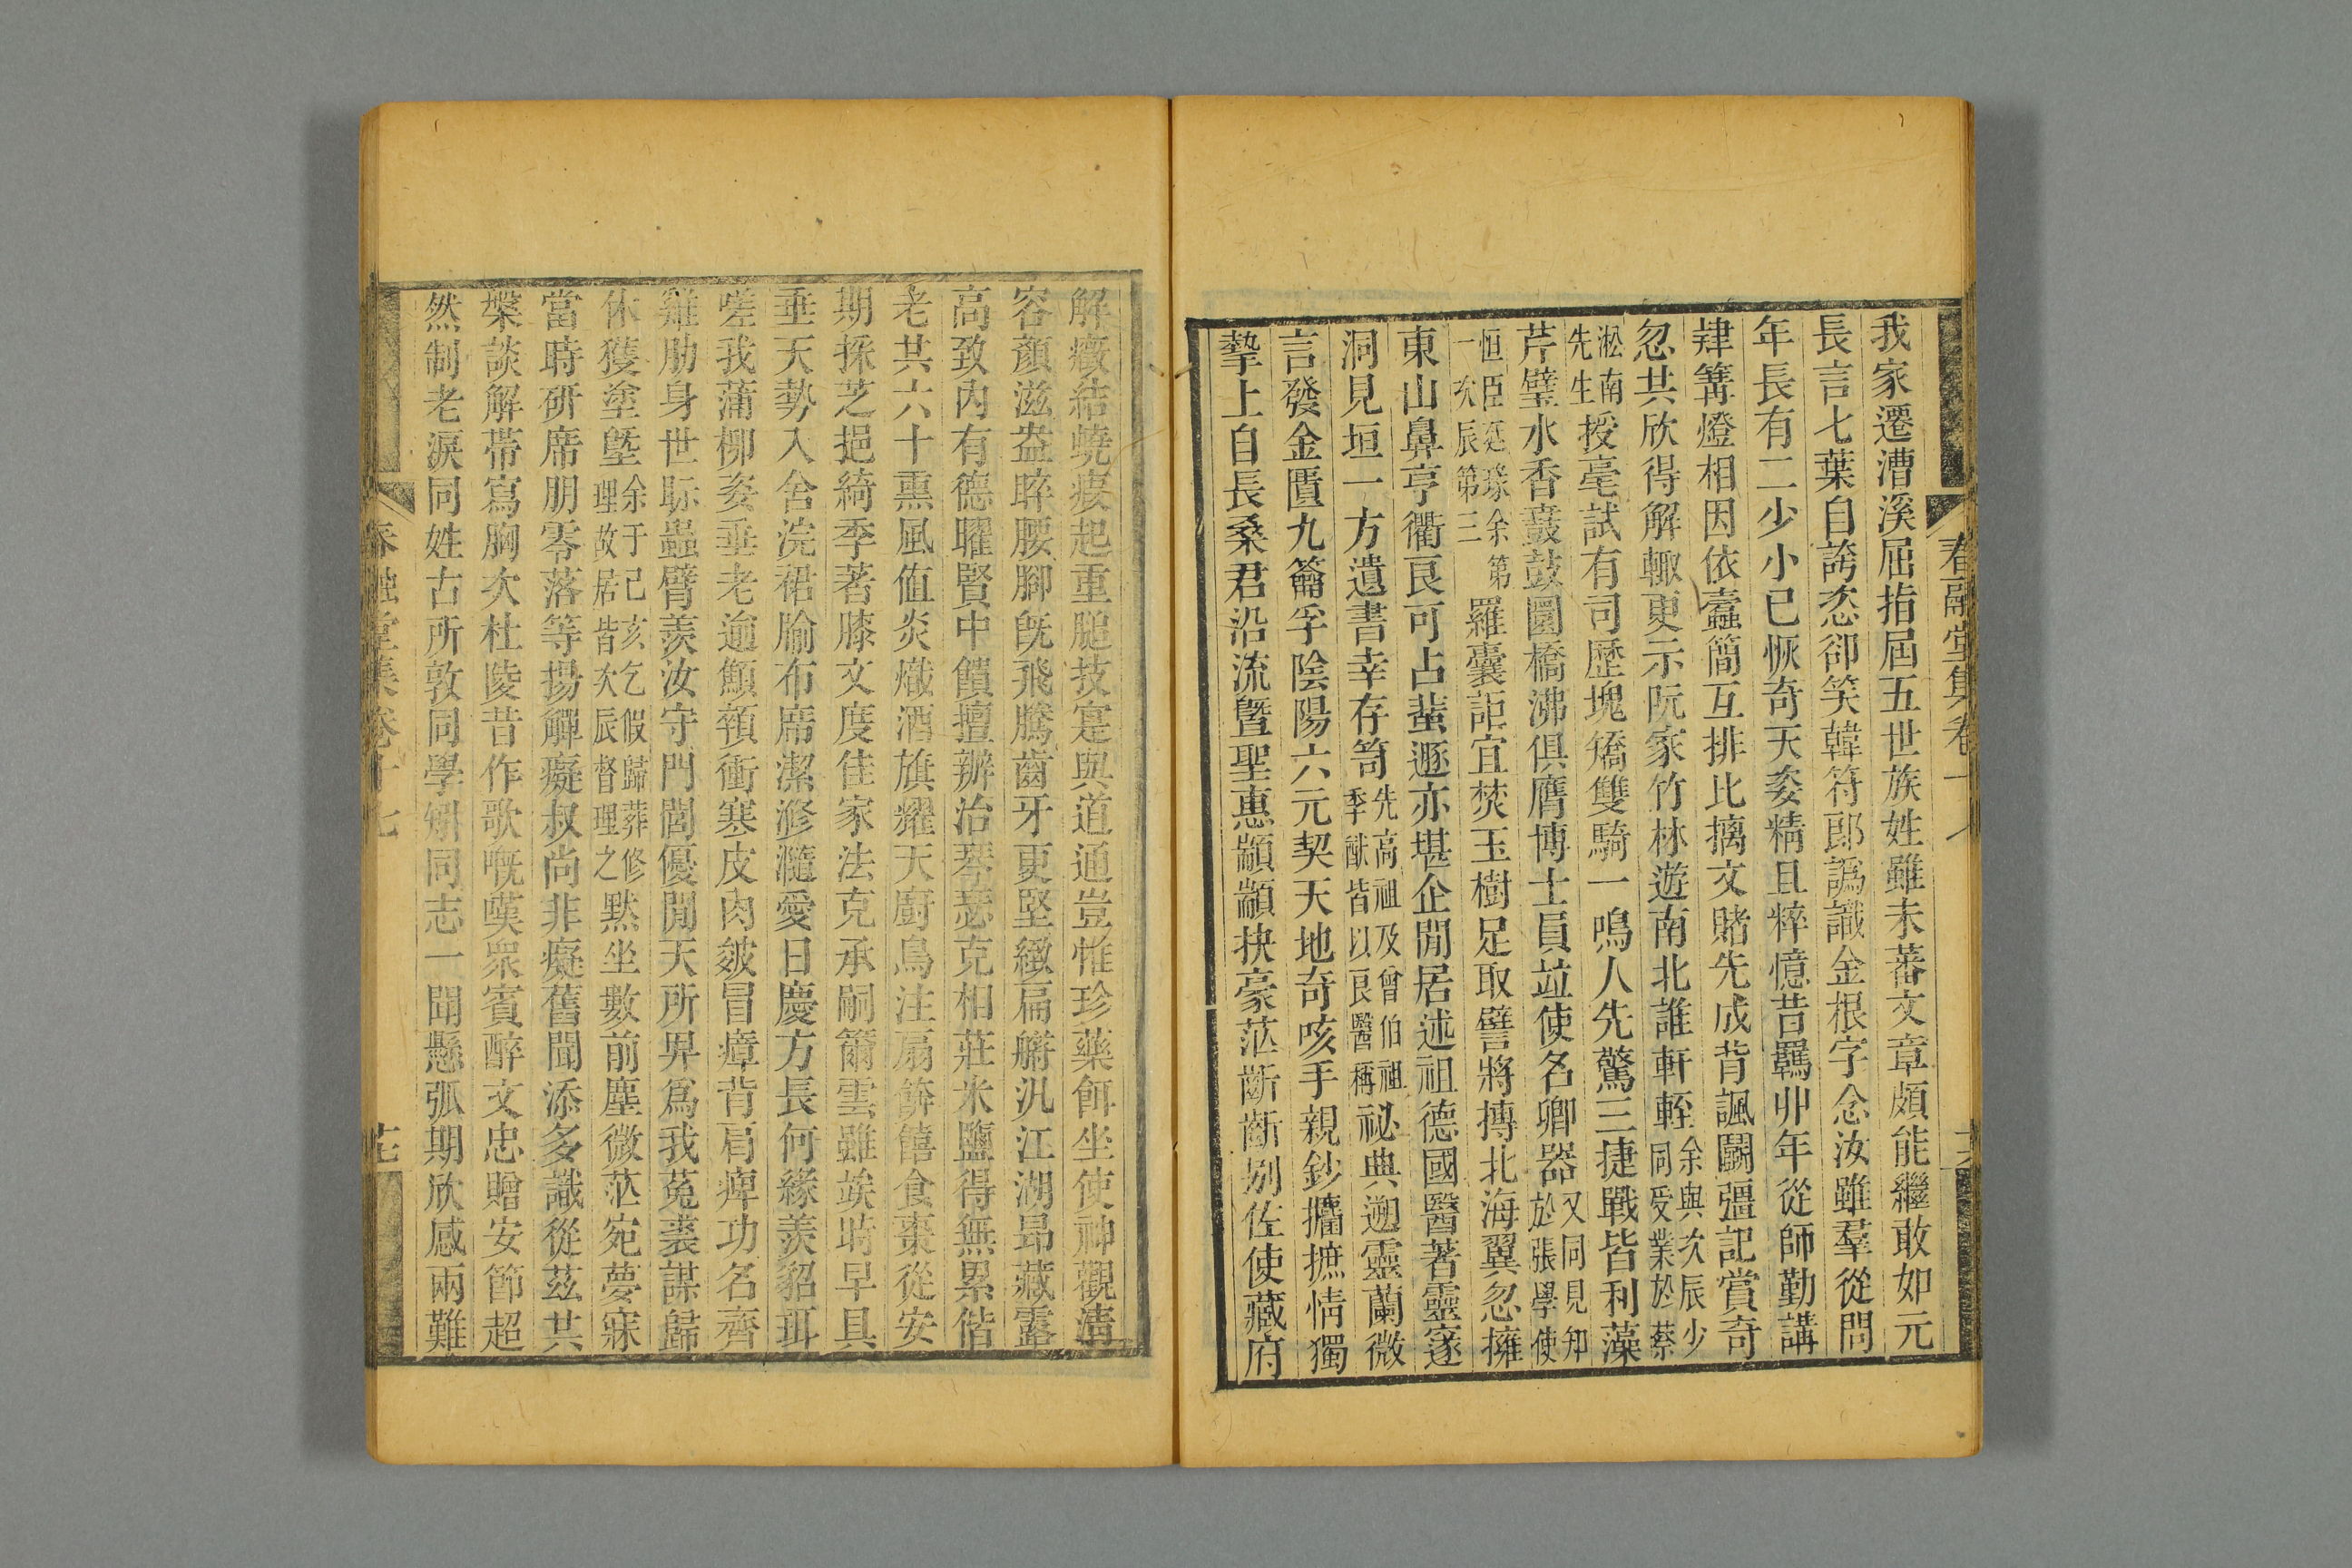 春融堂集卷十
我家遷漕溪屈指屆五世族姓雖未蕃文章頗能繼敢如元
長言七葉自誇恣卻笑韓符郎譌識金根字念汝雖羣從問
年長有二少小已恢奇天姿精且粹憶昔羈丱年從師勤講
肄篝燈相因依蠹簡互排比摛文賭先成背諷鬭彊記賞奇
忽共欣得解輙更示阮家竹林遊南北誰軒輊余與次辰少同受業於蔡
淞南先生授毫試有司歷塊矯雙騎一鳴人先驚三捷戰皆利藻
芹璧水香鼖鼓圜橋沸俱膺博士員竝使名卿器又同見知於張學使
恒臣廷瑑余第一次辰第三羅囊詎宜焚玉樹足取譬將摶北海翼忽擁
東山鼻亨衢艮可占蜚遯亦堪企閒居述祖德國醫著靈窽
洞見垣一方遺書幸存笥先高祖及曾伯祖季猷皆以良醫稱祕典遡靈蘭微
言發金匱九籥孚陰陽六元契天地奇咳手親鈔攟摭情獨
摯上自長桑君沿流曁聖惠顓顓抉豪茫齗齗别佐使藏府
解癥結蟯瘘起重膇技寔與道通豈惟珍藥餌坐使神觀清
容顏滋盎睟腰腳旣飛騰齒牙更堅緻扁艑汎江湖昂藏露
高致內有德曜賢中饋擅辦治琴瑟克相莊米鹽得無累偕
老共六十熏風值炎熾酒旗耀天廚鳥注扇餴饎食棗從安
期採芝挹綺季著膝文度佳家法克承嗣爾雲雖埃時早具
垂天勢入舍浣裙腧布席潔滫瀡愛日慶方長何緣羨貂珥
嗟我蒲柳姿垂老逾顦顇衝寒皮肉皴冒瘴背肩痺功名齊
雞肋身世眎蟲臂羨汝守門閭優閒天所畀爲我菟裘謀歸
休獲塗塈余于己亥乞假歸葬修理故居皆次辰督理之默坐數前塵微茫宛夢寐
當時硏席朋零落等揚觶癡叔尚非癡舊聞添多識從茲共
槃談解帶寫胸次杜陵昔作歌嘅嘆衆賓醉文忠贈安節超
然制老淚同姓古所敦同學矧同志一聞懸弧期欣感兩難
春融堂集卷十七